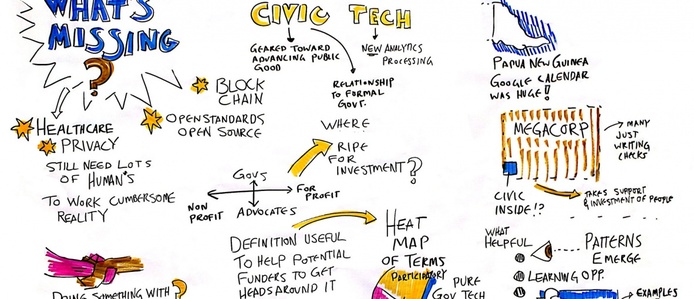 WHAT'S
MISSING
?
BLOCK
CHAIN
OPEN STANDARDS
OPEN SOURCE
HEALTHCARE
PRIVACY
STILL NEED LOTS
OF HUMAN'S
TO WORK CUMBERSOME
REALITY
DOING SOMETHING WITH ?
CIVIC TECH
GEARED TOWARD
ADVANCING PUBLIC
GOOD
NEW ANALYTICS
PROCESSING
RELATIONSHIP
TO FORMAL
GOVT.
WHERE
RIPE
FOR
INVESTMENT?
GOVS
NON
PROFIT
FOR
PROFIT
ADVOCATES
DEFINITION USEFUL
TO HELP POTENTIAL
FUNDERS TO GET
HEADS AROUND IT
HEAT
MAP
OF TERMS
PARTICIPATORY
PURE
GOV TECH
PAPUA NEW GUINEA
GOOGLE CALENDAR
WAS HUGE!
MEGACORP
MANY
JUST
WRITING
CHECKS
CIVIC
INSIDE!?
TAKES SUPPORT
& INVESTMENT OF PEOPLE
WHAT
HELPFUL
PATTERNS
EMERGE
LEARNING OPP.
EXAMPLES